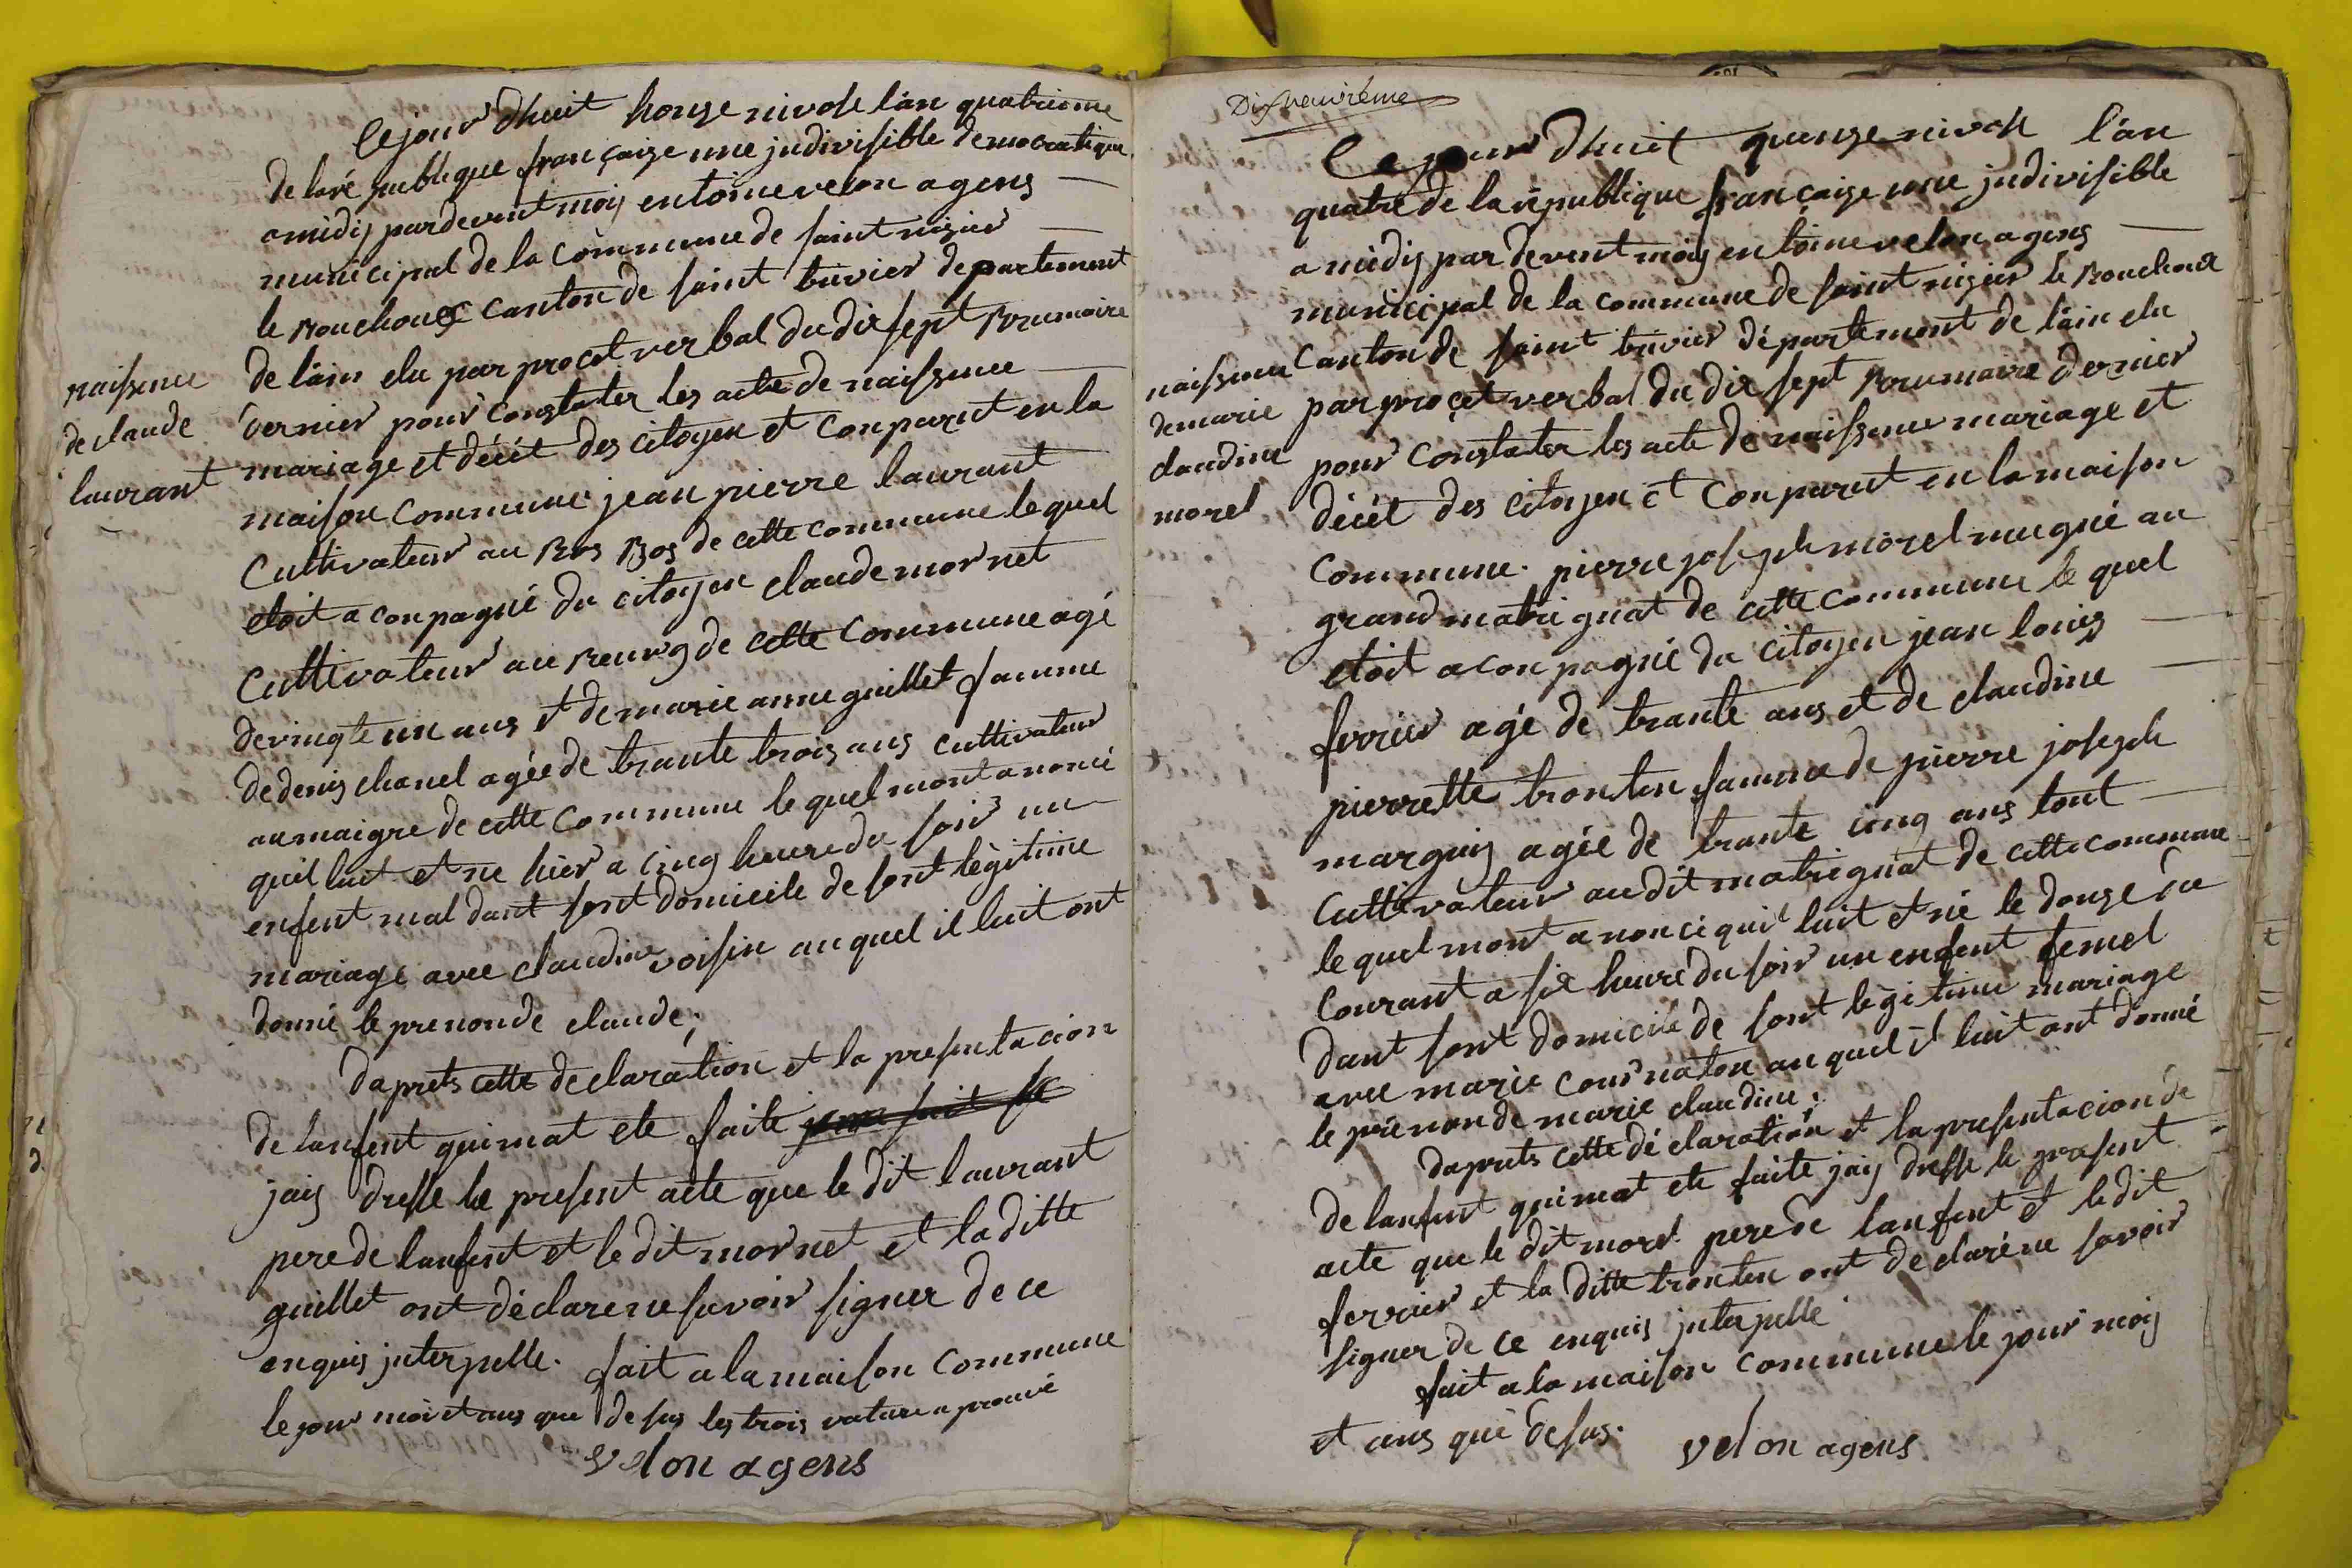 Cejourdhuit honze nivose lan quatrieme
de laré publique françaize une jndivisible democratique
amidij pardevent moij entoine velon agens
municipal de la commune de saint nizier
le Bouchoux canton de saint trivier departement
de lain elu par procet verbal du dix sept Brumaire
dernier pour constater les acte de naissence
mariage et décét des citoyen et conparut en la
maison commune jean pierre laurant
Cultivateur au Bos de cette commune le quel
etoit aconpagné du citoyen claude mornet
Cultivateur au Bourg de cette commune agé
de vingte un ans et de marie anne guillet famme
de denis chanel agée de trante trois ans cultivateur
au maigre de cette commune le quel mont anoncé
quil luit et ne hier a cinq heure du soir un
enfent mal dant sont domicile de sont légitime
mariage avec claudine voisin au quel il luit ont
donné le prenon de claude.
daprets cette declaration et la presentacion
de lanfent quimat ete faite
jais dresse le present acte que le dit laurant
pere de lanfent et le dit mornet et la ditte
guillet ont déclare ne savoir signer de ce
enquis jnterpelle. fait a la maison commune
le jour moi et ans que desus les trois rature aprouvé
velon agens
naissence
de claude
laurant
Dixneuvième
Ce jour dhuit quinze nivose lan
quatre de la république françaize une jndivisible
a midij par devent moij entoine velon agens
municipal de la commune de saint nizier le Bouchoux
Canton de saint trivier département de lain elu
par procet verbal du dix sept Brumaire dernier
pour constater les acte de naissence mariage et
décét des citoyen et conparut en la maison
commune. pierre joseph morel mugné au
grand matrignat de cette commune le quel
etoit aconpagné du citoyen jean louis
ferrier agé de trante ans et de claudine
pierrette tronten famme de pierre joseph
marguis agée de trante cinq ans tout
Cultivateur au dit matrignat de cette commune
le quel mont anoncé quil luit et né le douze du
Courant a six heure du soir un enfent femel
dant sont domicile de sont légitime mariage
avec marie cournaton au quel il luit ont donné
le prénon de marie claudine.
daprets cette déclaration et la presentacion de
de lanfent quimat ete faite jais dresse le present
acte que le dit morel pere de lanfent et le dit
ferrier et la ditte tronten ont declaré ne savoir
signer de ce enquis jnterpelle
fait a la maison commune le jour mois
et ans que desus.
velon agens
naissence
de marie
claudine
morel